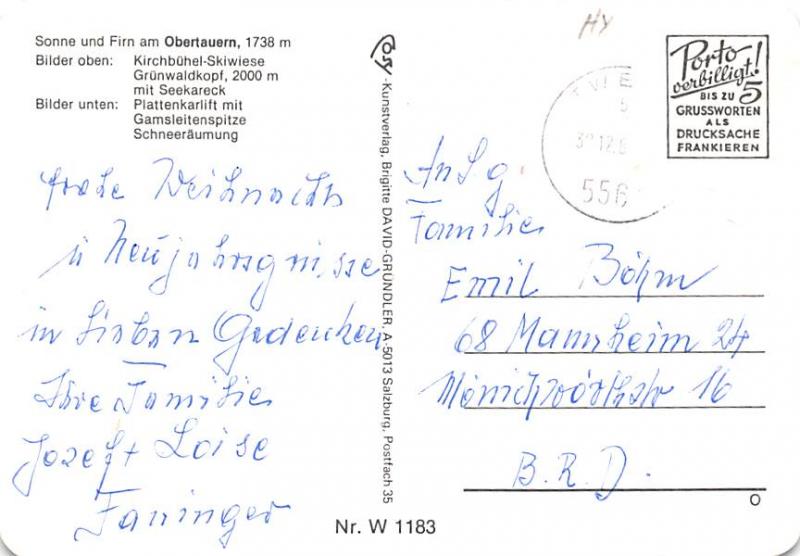 Sonne und Firn am Obertauern, 1738 m
Bilder oben: Kirchbühel-Skiwiese
Grünwaldkopf, 2000 m
mit Seekareck
Bilder unten: Plattenkarlift mit
Gamsleitenspitze
Schneeräumung
frohe Weihnachts
u Neujahrsgrüsse
in lieben Gedenken
Ihre Familie
Josef + Loise
Faninger
Cosy-Kunstverlag, Brigitte DAVID-GRÜNDLER, A-5013 Salzburg, Postfach 35
Nr. W 1183
HY
556
Porto
verbilligt!
BIS ZU 5
GRUSSWORTEN
ALS
DRUCKSACHE
FRANKIEREN
An Sg.
Familie
Emil Böhm
68 Mannheim 24
Mönchwörthstr 16
B.R.D.